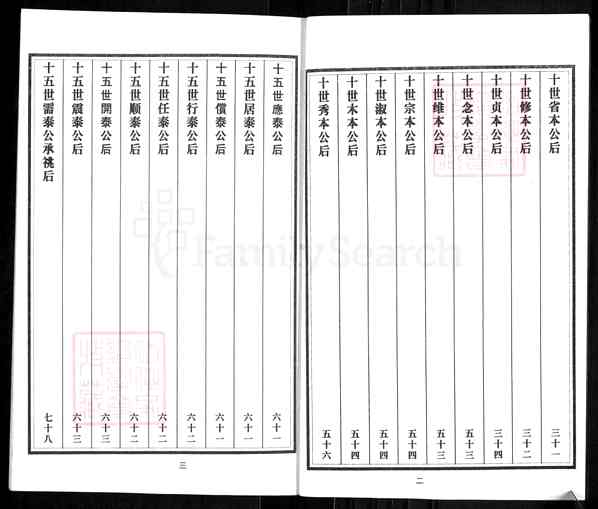 十世省本公后 三十一
十世修本公后 三十二
十世贞本公后 三十四
十世念本公后 五十三
十世维本公后 五十三
十世宗本公后 五十四
十世淑本公后 五十四
十世木本公后 五十四
十世秀本公后 五十六
二
十五世應泰公后 六十一
十五世居泰公后 六十一
十五世償泰公后 六十一
十五世行泰公后 六十二
十五世任泰公后 六十二
十五世顺泰公后 六十二
十五世開泰公后 六十三
十五世震泰公后 六十三
十五世需泰公承祧后 七十八
三
FamilySearch